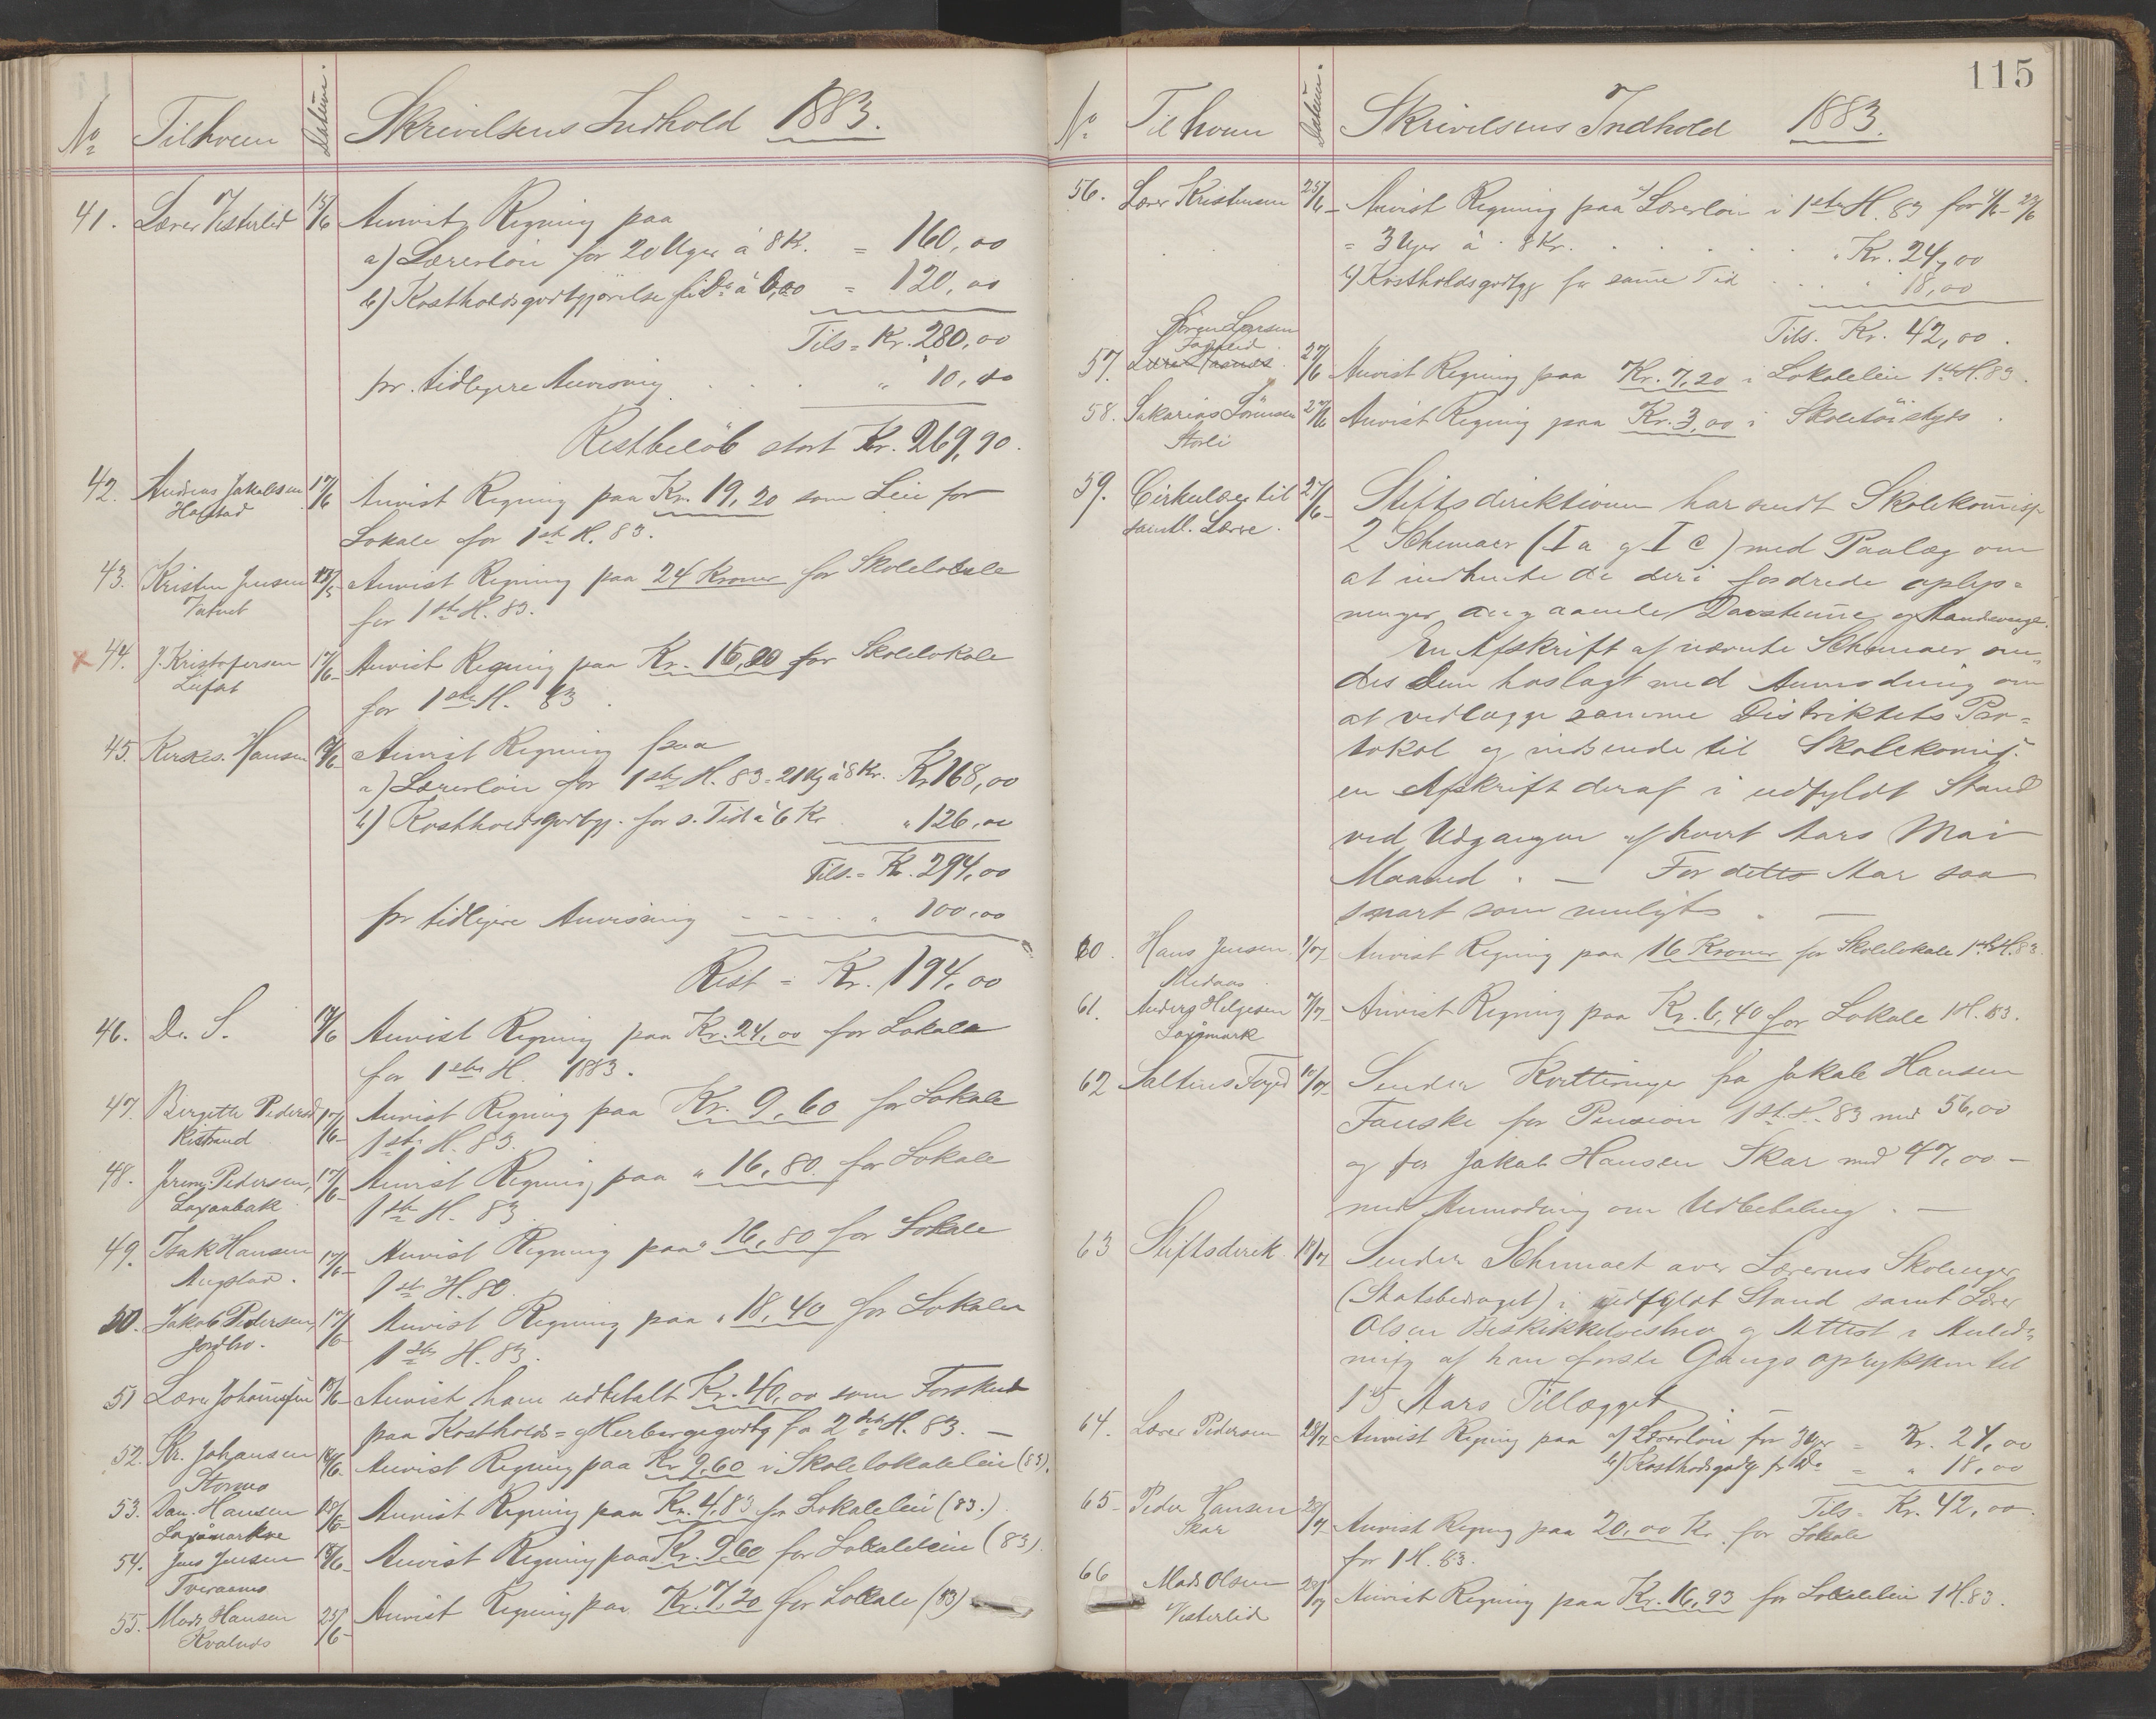 No Tilhvem Datum. Skrivelsens Indhold 1883.
41. Lærer Vesterlid 15/6 Anvist Regning paa
a) Lærerløn for 20 Uger á 8 K. = 160,00
b) Kostholdsgodtgjørelse for Do á 6,00 = 120,00
Tils = Kr. 280,00
pr. tidligere Anvisning . . . " 10,10
Restbeløb stort Kr. 269,90.
42. Andreas Jakobsen 17/6 Anvist Regning paa Kr. 19,20 som Leie for
Halstad
Lokale for 1ste H. 83.
43. Kristen Jensen Anvist Regning paa 24 Kroner for Skolelokale
Vatnet for 1ste H. 83.
x 44. J. Kristofersen 17/6 Anvist Regning paa Kr. 16,80 for Skolelokale
Leifset for 1ste H. 83.
45. Kirkes. Hansen Anvist Regning paa
a) Lærerløn for 1ste H. 83 = 21 Ug á 8 Kr. Kr 168,00
b) Kostholdsgodtgj. for s. Tid á 6 Kr " 126,00
Tils. = Kr. 294,00
pr tidligere Anvisning - - - - " 100,00
Rest = Kr. 194,00
46. Do. S. Anvist Regning paa Kr. 24,00 for Lokale
for 1ste H. 1883.
47. Bergitte Pedersd 17/6 Anvist Regning paa Kr. 9,60 for Lokale
Ristrand 1ste H. 83.
48. Jrim. Pedersen, 17/6 Anvist Regning paa " 16,80 for Lokale
Laxaabak 1ste H. 83
49. Isak Hansen 17/6 Anvist Regning paa " 16,80 for Lokale
Nygslad. 1ste H. 80.
50. Jakob Pedersen, 17/6 Anvist Regning paa " 18,40 for Lokaler
Jordbro. 1ste H. 83.
51 Lærer Johannesen Anvist ham udbetalt Kr. 40,00 som Forskud
paa Kostholds= og Herbergegodtg for 2det H. 83. —
52. Kr. Johansen Anvist Regning paa Kr 9,60 i Skolelokaleleie (83).
Stormo
53. Dan. Hansen 18/6 Anvist Regning paa Kr. 4,83 for Lokaleleie (83.)
Laxåmarken
54. Jens Jensen Anvist Regning paa Kr. 9,60 for Lokaleleie (83).
Tveraamo
55. Mads Hansen 25/6 Anvist Regning paa Kr. 7,20 for Lokale (83)
Kvalnes
115
No Tilhvem Datum. Skrivelsens Indhold 1883.
56. Lærer Kristensen 25/6 Anvist Regning paa Lærerløn i 1ste H. 83 for
= 3 Uger á 8 Kr. . . . . Kr. 24,00
b) Kostholdsgodtgj for samme Tid . . . 18,00
Tils. Kr. 42,00.
Søren Larsen
57. 27/6 Anvist Regning paa Kr. 7,20 i Lokaleleie 1ste H. 83.
58. Sakarias Sørensen 27/6 Anvist Regning paa Kr. 3,00 i Skoletøistyds.
Storli
59. Cirkulære til 27/6 Stiftsdirektionen har sendt Skolekommisj
samtl. Lærere. 2 Schemaer (I a og I c) med Paalæg om
at indhente de deri fordrede oplys=
ninger angaaende Døvstumme og Aandssvage.
En Afskrift af nævnte Schemaer sen=
des Dem hoslagt med Anmodning om
at vedlægge samme Distriktets Pro=
tokol og indsende til Skolekomis.
en Afskrift deraf i udfyldt Stand
ved Udgangen af hvert Aars Mai
Maaned. — For dette Aar saa
snart som muligt. —
60. Hans Jensen Anvist Regning paa 16 Kroner for Skolelokale 1ste H. 83.
Medaas
61. Anders Helgesen Anvist Regning paa Kr. 6,40 for Lokale 1 H. 83.
Laxåmark
62 Saltens Foged Sender Kvitteringer fra Jakob Hansen
Fauske for Pension 1ste H. 83 med 56,00
og for Jakob Hansen Skar med 47,00 —
med Anmodning om Udbetaling. —
63 Stiftsdirek. 18/7 Sender Schemaet over Lærernes Skoleuger
(Statsbedraget) i udfyldt Stand samt Lærer
Olsen Beskikkelsesbrev og Attest i Anled=
ning af han første Gangs oprykken til
15 Aars Tillægget. —
64. Lærer Pedersen 28/7 Anvist Regning paa a) Lærerløn for 3 Uger = Kr. 24,00
b) Kostholdsgodtg. for Do = " 18,00
Tils = Kr. 42,00.
65 Peder Hansen 28/7 Anvist Regning paa 20,00 Kr. for Lokale
Skar for 1 H. 83.
66 Mads Olsen 28/7 Anvist Regning paa Kr. 16,93 for Lokaleleie 1 H. 83.
Vesterlid